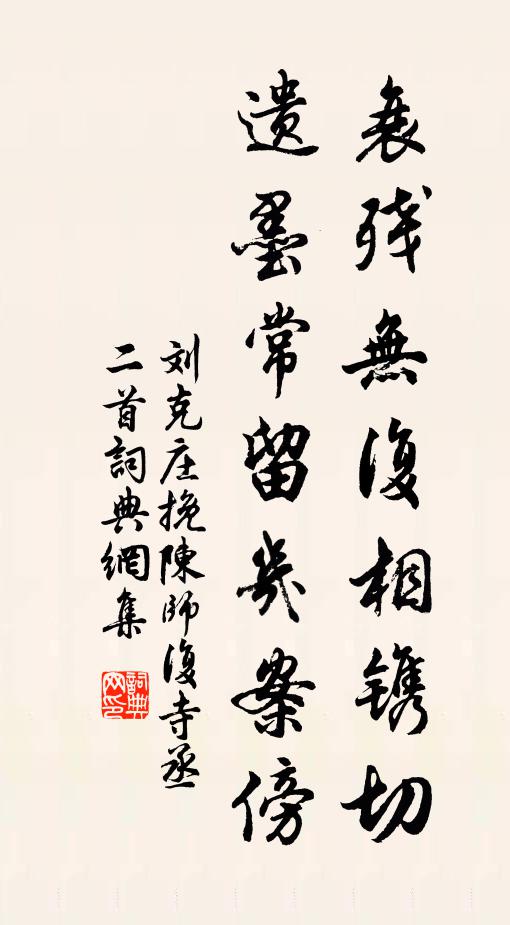 衰残無復相镌切
遺墨常留几案傍
刘克庄挽陳師復寺丞
二首詞典網集
詞典
网印